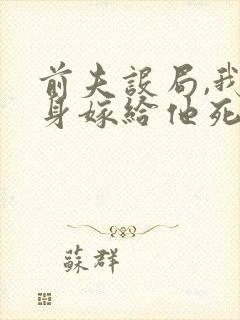 前夫設局,我
身嫁給他死
蘇群